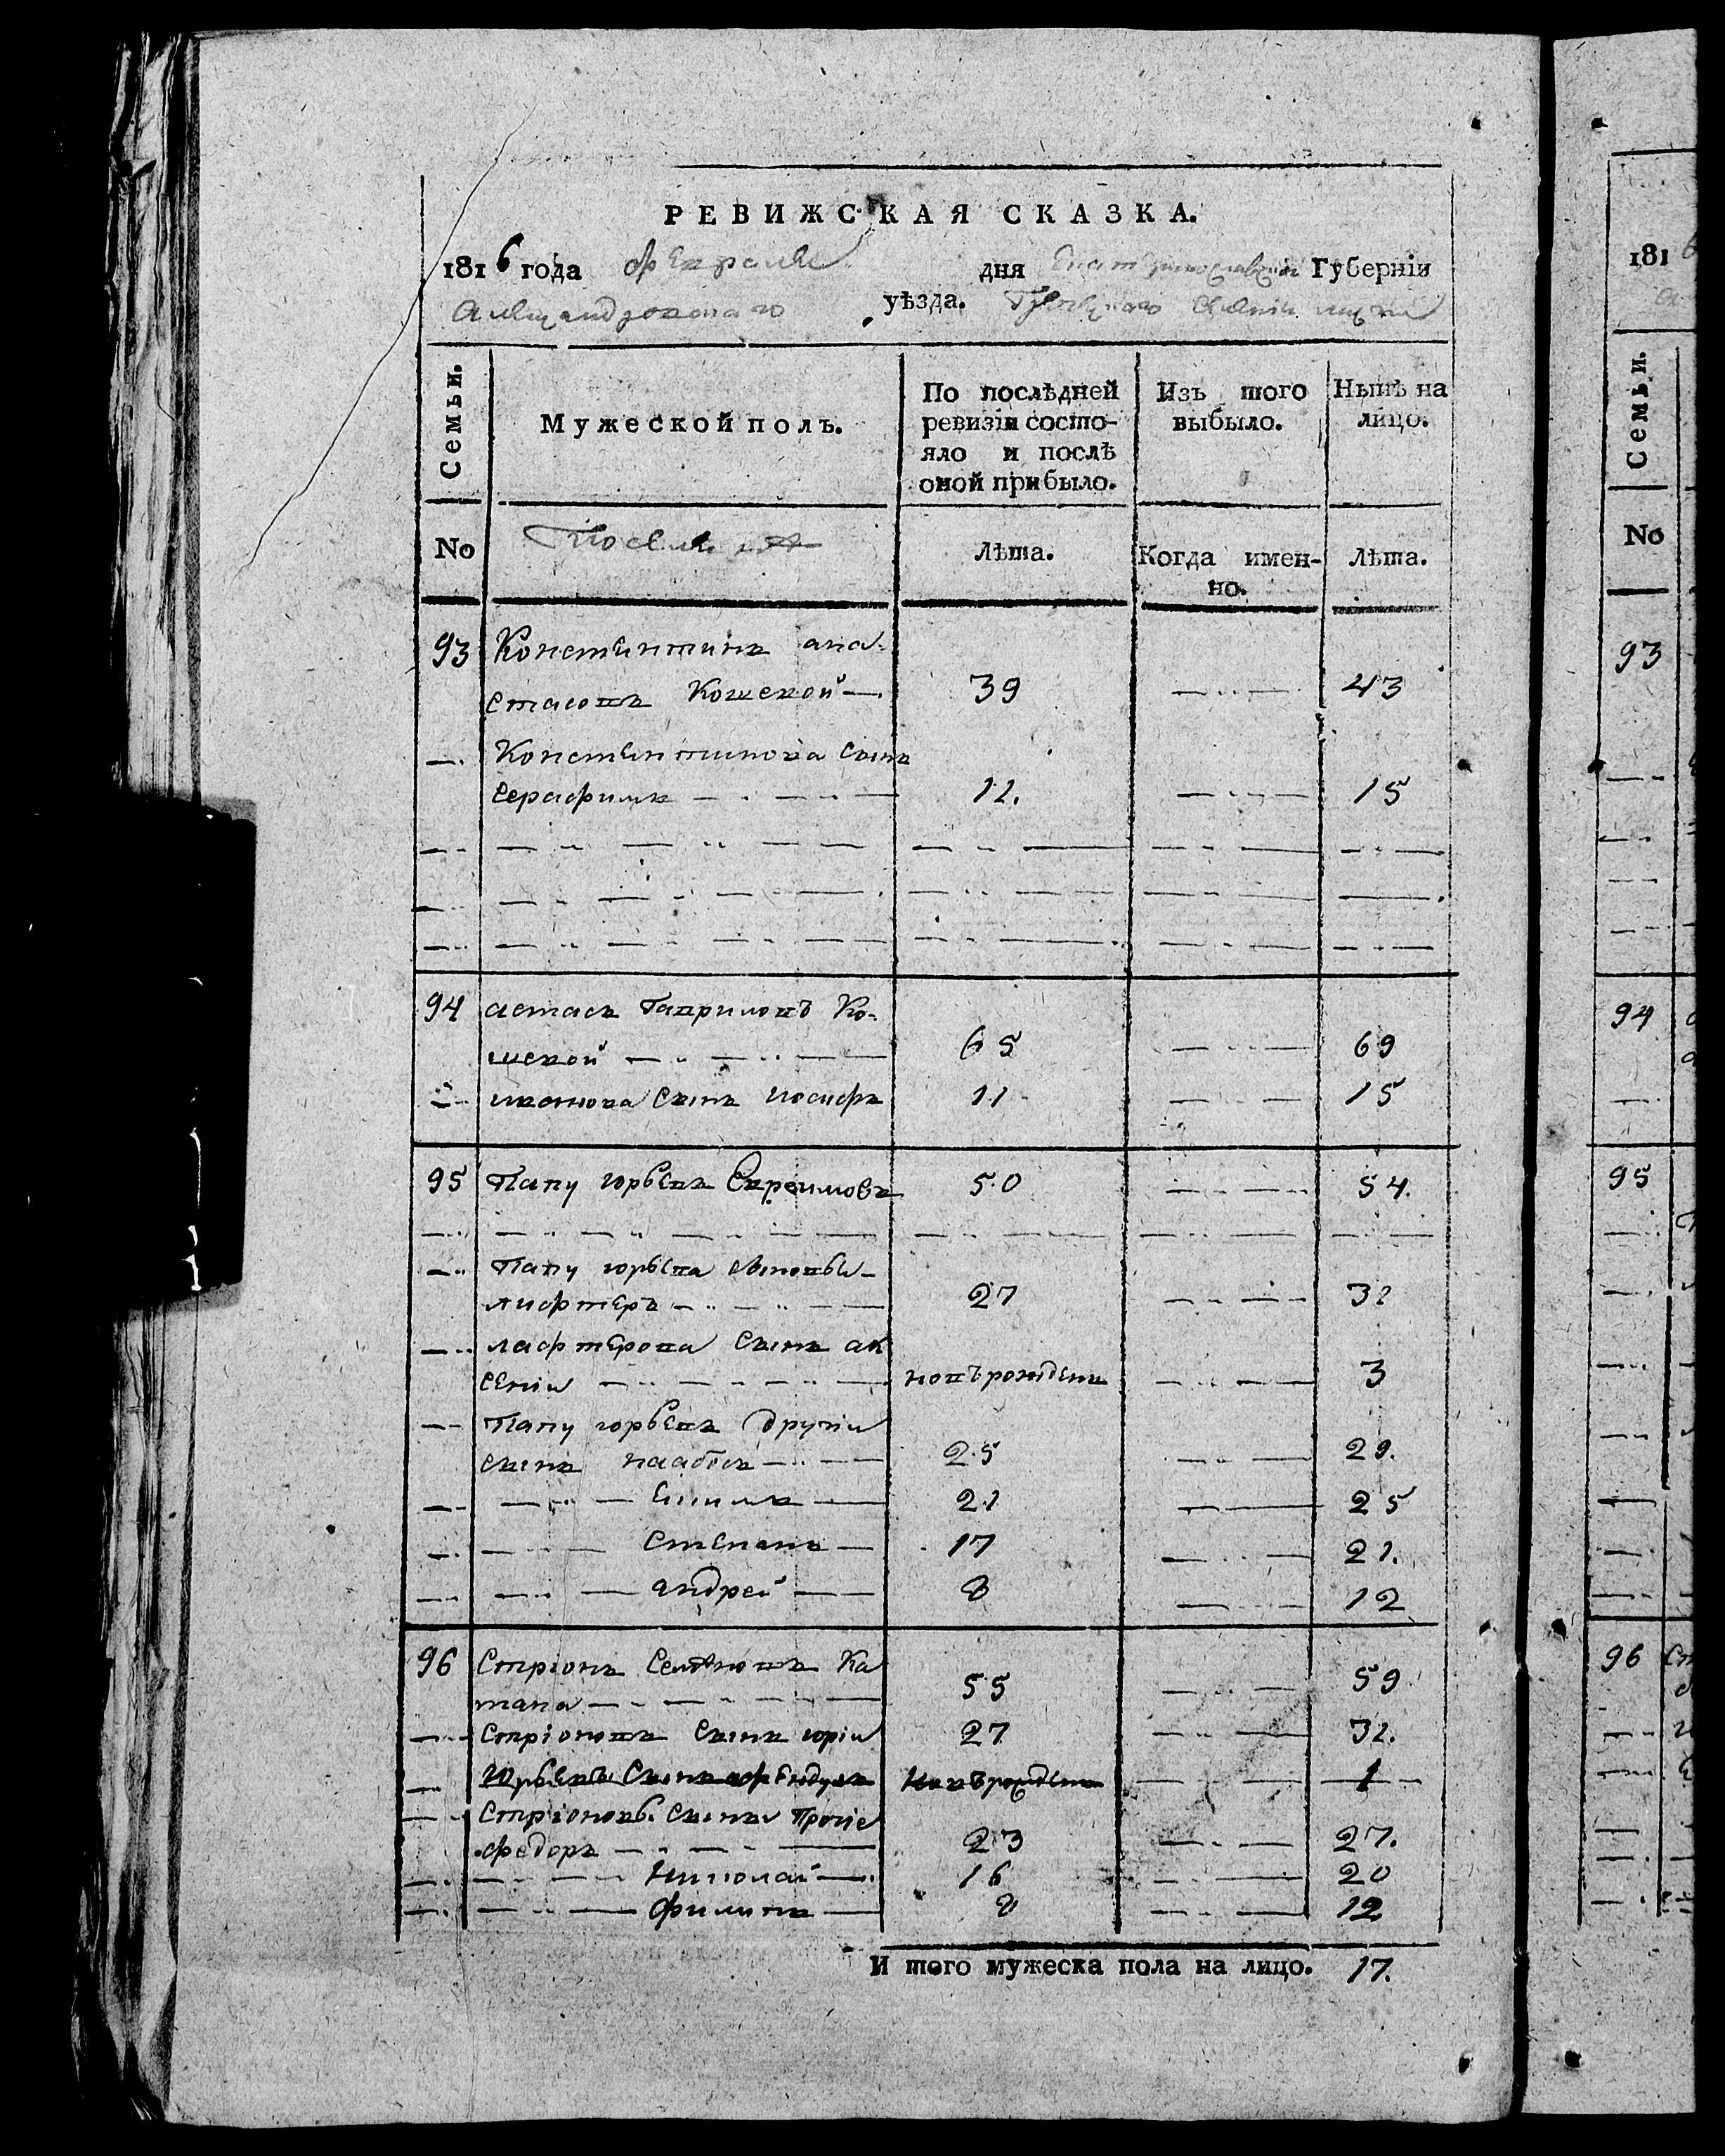 РЕВИЖСКАЯ СКАЗКА.
1816 года февраля дня Екатеринославской Губерніи
Александровскаго уѣзда. Греческаго
Семьи. Мужеской полъ. По послѣдней ревизіи состо-яло и послѣ оной прибыло. Изъ того выбыло. Нынѣ на лицо.
No Поселяне Лѣта. Когда имен-но. Лѣта.
93 Константинъ ана-
стасовъ Кошской 39 43
Константинова сынъ
серафимъ 11. 15
94 астасъ Гавриловъ Ко-
шской 65 69
иванова сынъ иосифъ 11 15
95 Папу юрьевъ Ефремовъ 50 54.
Папу юрьева сыновья
лифтеръ 27 31
лафтерова сынъ ак
сеніи новърожденъ 3
Папу юрьевъ другіи
сынъ 25 29.
21 25
Степанъ 17 21.
андрей 8 12
96 Стріонъ Семеновъ Ка
тана 55 59
Стріоновъ сынъ юріи 27 31.
Юрьевъ Сынъ новърожденъ 1
Стріоновы. сыны Прочіе
федоръ 23 27.
Николай 16 20
Филипъ 8 12
И того мужеска пола на лицо. 17.
181
Семьи.
No
93
94
95
96